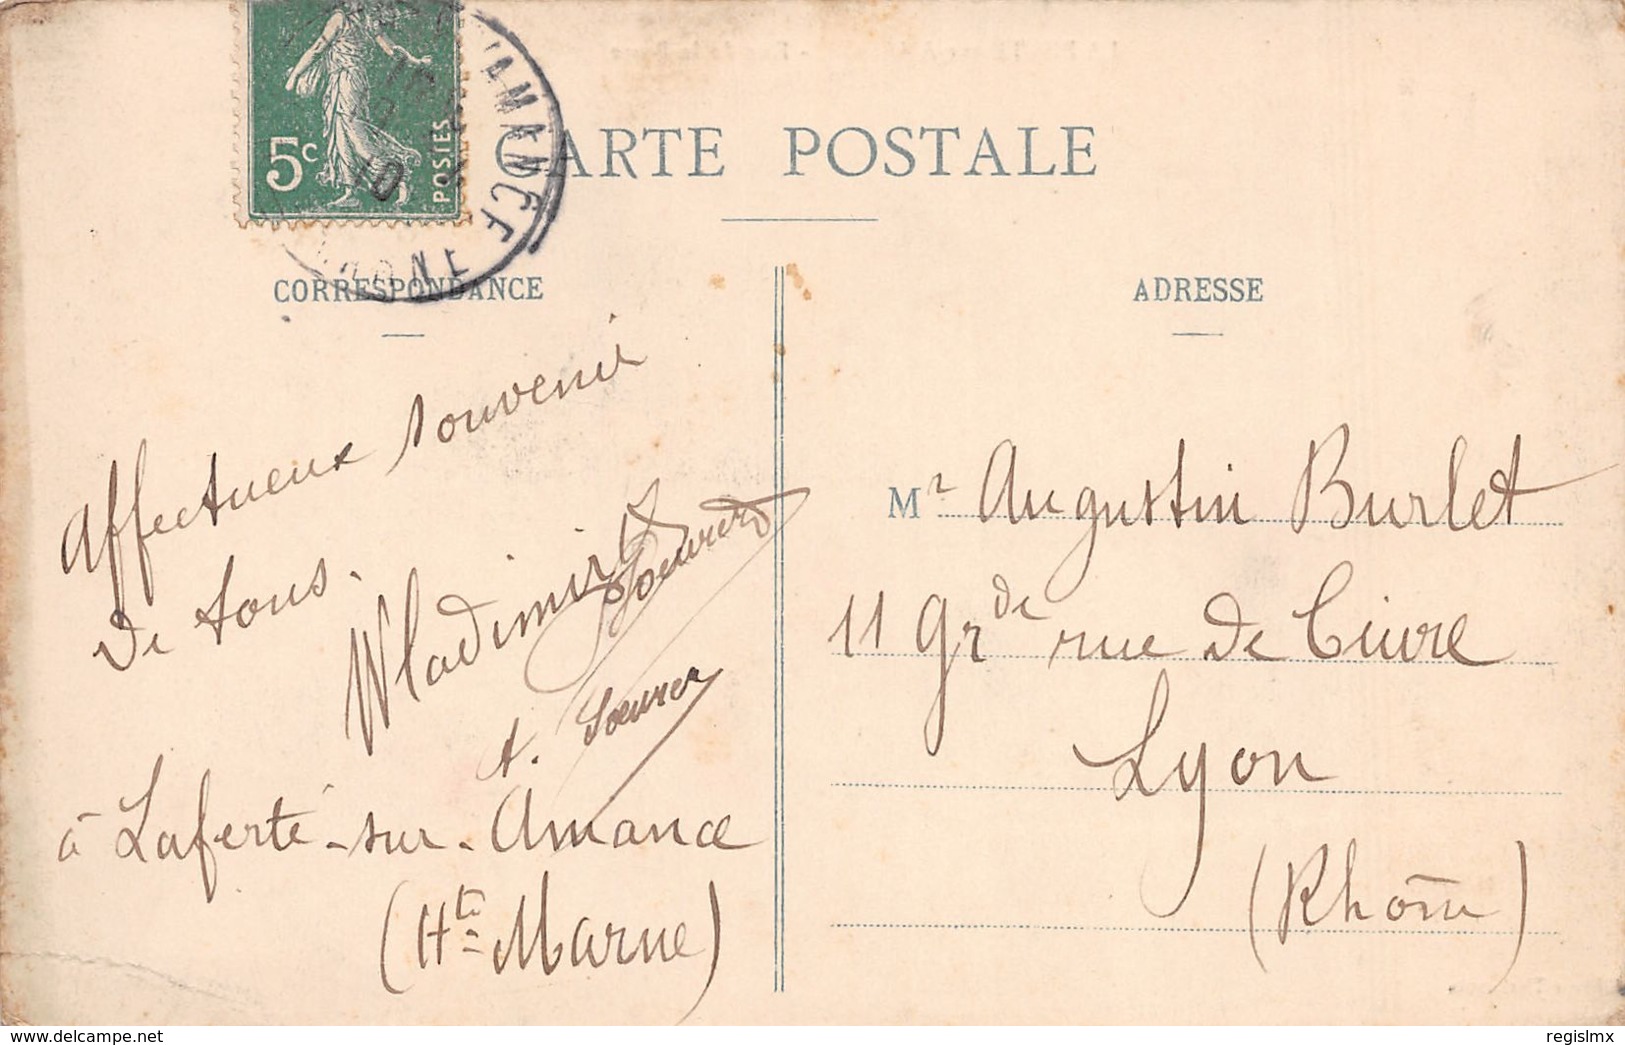 5c
POSTES
CARTE POSTALE
CORRESPONDANCE
Affectueux souvenir
de tous.
Wladimir
A.
à Laferté-sur-Amance
(Hte Marne)
ADRESSE
Mr Augustin Burlet
11 Grde rue de Cuire
Lyon
(Rhône)
delcampe.net
regislmx